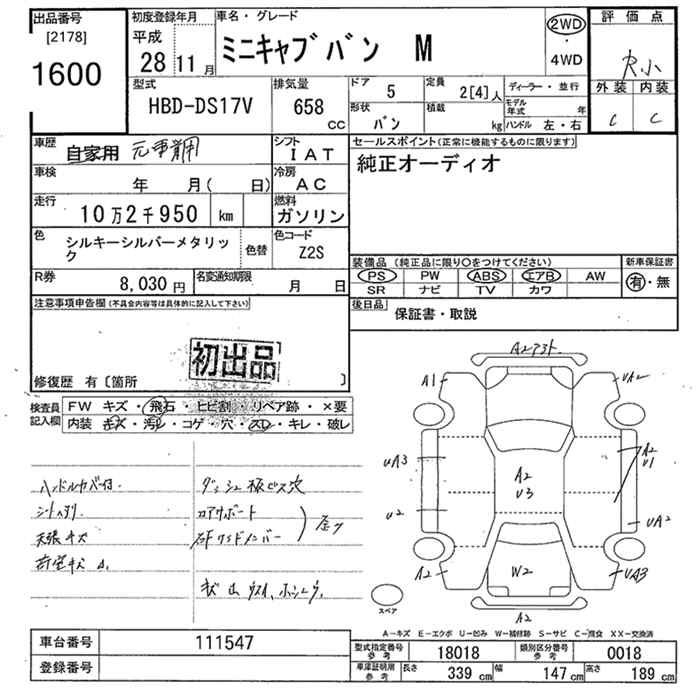 出品番号
[2178]
1600
初度登録年月
平成
28 11月
車名・グレード
ミニキャブバン M
2WD
・
4WD
評価点
外装 内装
C C
型式
HBD-DS17V
排気量
658
CC
ドア
5
形状
バン
定員
2[4]人
積載
kg
ディーラー・並行
モデル年式 年
ハンドル 左・右
車歴
自家用
シフト
I A T
車検
年 月( 日)
冷房
A C
走行
10万2千950 km
燃料
ガソリン
色
シルキーシルバーメタリック
色替
色コード
Z2S
R券
8,030円
名変通知期限
月 日
セールスポイント(正常に機能するものに限ります)
純正オーディオ
装備品(純正品に限り〇をつけてください)
PS PW ABS エアB AW
SR ナビ TV カワ
新車保証書
有・無
後日品
保証書・取説
注意事項申告欄(不具合内容等は具体的に記入して下さい)
初出品
修復歴 有〔箇所 〕
検査員記入欄
FW キズ・飛石・ヒビ割・リペア跡・×要
内装 キズ・汚レ・コゲ・穴・スレ・キレ・破レ
ハンドルカバー付
シートヘタリ
天張キズ
ダッシュ板ビス穴
コアサポート
A1
UA2
UA3
U2
A2
U3
A2
U1
UA2
A2
W2
UA3
A2
スペア
A―キズ E―エクボ U―凹み W―補修跡 S―サビ C―腐食 XX―交換済
車台番号
111547
登録番号
型式指定番号
参考
18018
類別区分番号
参考
0018
車庫証明用
参考
長さ 339 cm 幅 147 cm 高さ 189 cm